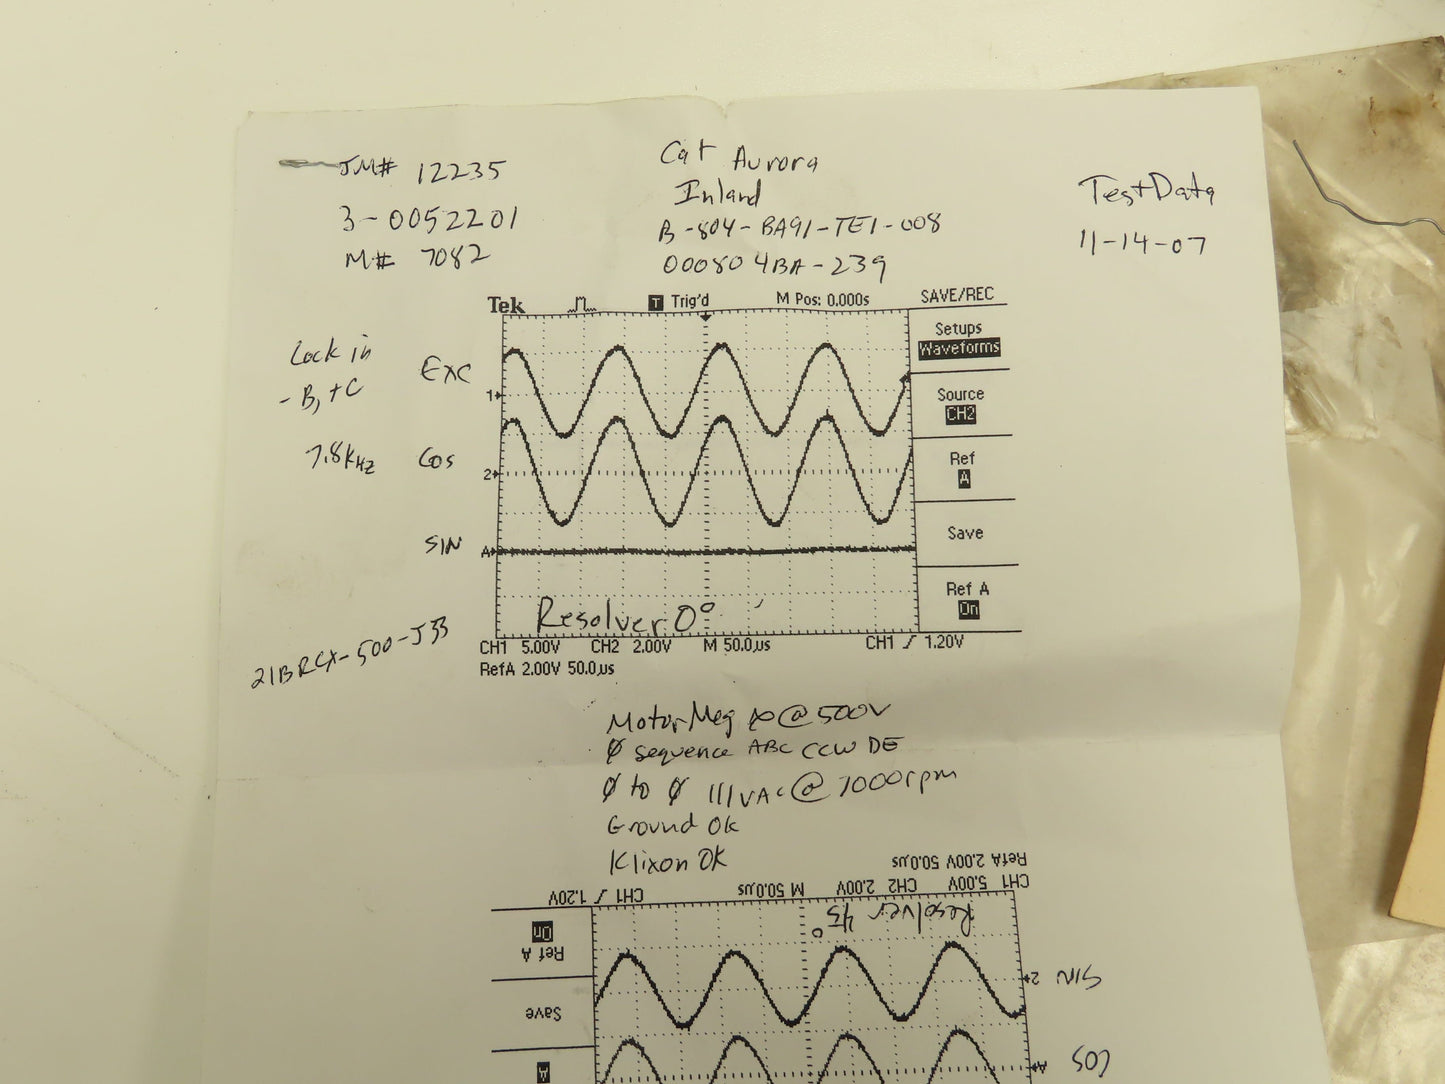 JM# 12235
3-0052201
M# 7082
Cat Aurora
Inland
B-804-BA91-TE1-008
000804BA-239
Test Data
11-14-07
Tek
T Trig'd
M Pos: 0.000s
SAVE/REC
Setups
Waveforms
Source
CH2
Ref
A
Save
Ref A
On
Lock in
- B, + C
7.8KHz
Exc
Cos
SIN
1
2
A
Resolver 0°
CH1 5.00V CH2 2.00V M 50.0µs CH1 1.20V
RefA 2.00V 50.0µs
21BRCX-500-J33
Motor Meg ∞ @ 500V
Ø sequence ABC CCW DE
Ø to Ø 111VAC @ 1000rpm
Ground Ok
Klixon OK
RefA 2.00V 50.0µs
CH1 5.00V CH2 2.00V M 50.0µs CH1 1.20V
Resolver 45°
On
Ref A
Save
A
SIN
2
COS
A